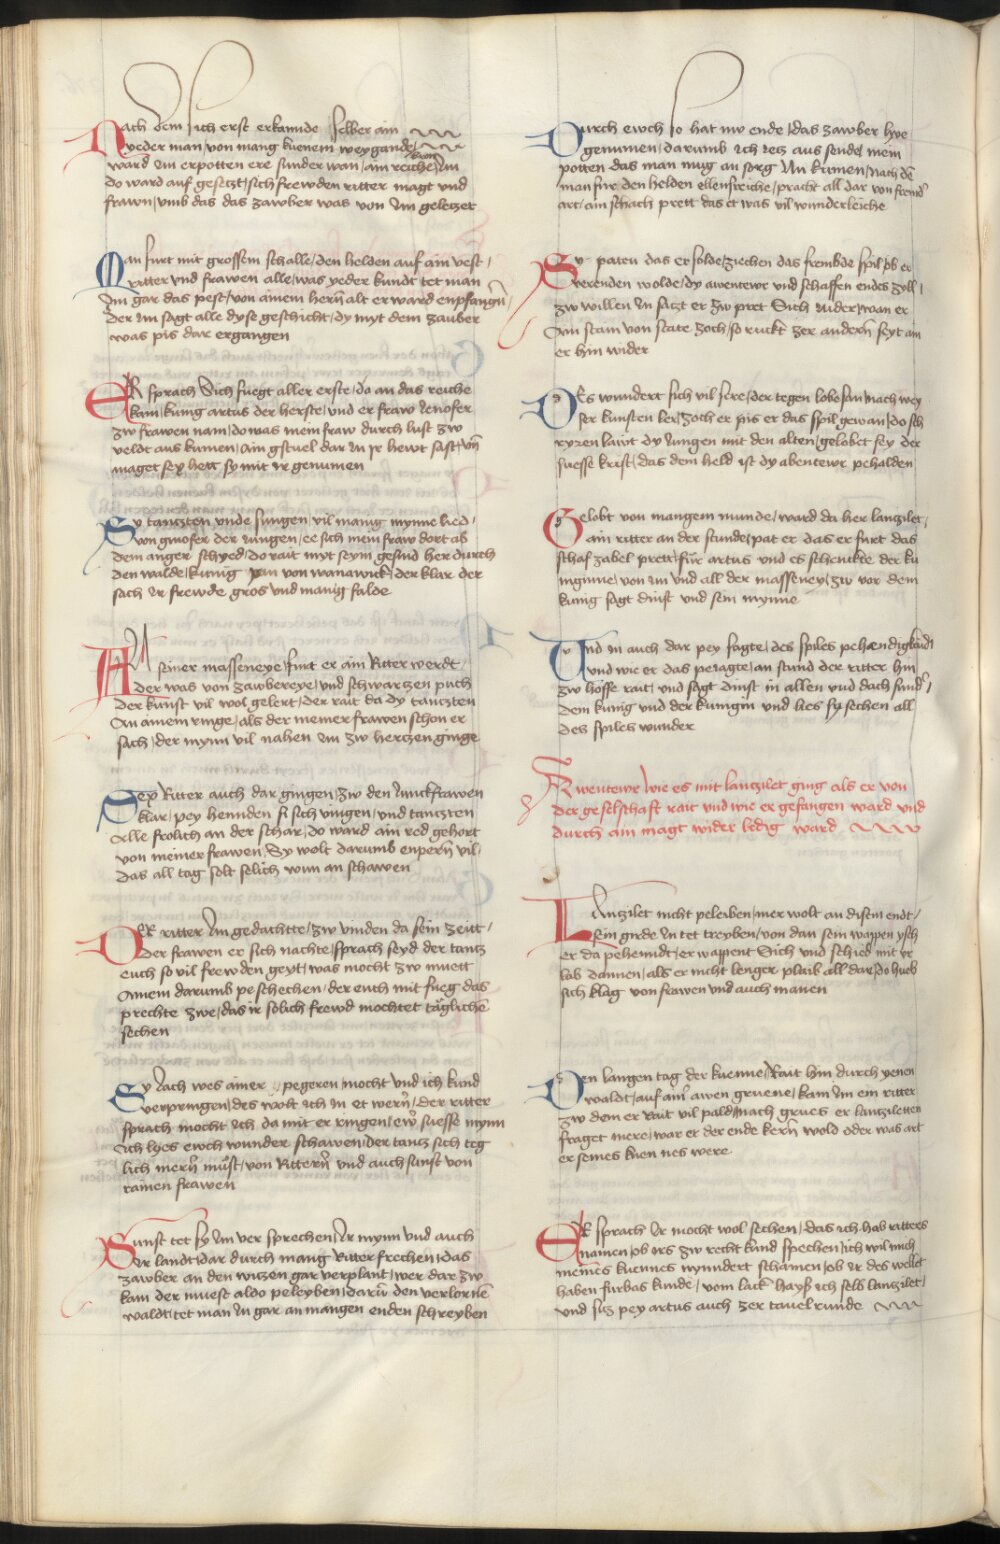 Nach dem sich erst erkannde selber ain
yeder man von mang kuenem weygande
ward im erpotten ere sunder wan am reichen kam im
do ward auf gesetzt sich frewden ritter magt und
frawn umb das das zawber was von im geletzet
Man furt mit grossem schalle den helden auf ain vest
ritter und frawen alle was yeder kundt tet man
im gar das pest von ainem hern alt er ward enpfangn
der im sagt alle dyse geschicht dy myt dem zauber
was pis dar ergangen
Er sprach Sich fuegt aller erste do an das reiche
kam kung artus der herste und er fraw Jenofer
zw frawen nam do was mein fraw durch lust zw
veldt aus kumen ain gstuel dar In ir hewt sast vn
maget sex hett sy mit ir genumen
Sy tanzten unde sungen vil manig mynne lied
von ginofer der iungen ee sich mein fraw dort ab
dem anger schyed do rait myt seym gesind her durch
den walde kunig pan von wanawick der klar der
sach ir frewde gros und manig falde
Au seiner masseneye furt er ain Ritter werdt
der was von zawbereye und schwartzen puch
der kunst vil wol gelert der rait da dy tanczten
an ainem ringe als der meiner frawen schon er
sach der mynn vil nahen im zw hertzen ginge
Sex Ritter auch dar gingen zw den iunckfrawen
klar pey hennden si sich vingen und tanczten
alle frolich an der schar do ward ain red gehort
von meiner frawen Sy wolt darumb enpern vil
das all tag solt solich wun an schawen
Der ritter im gedachtte zw vinden da sein zeitt
der frawen er sich nachte sprach seyd der tantz
euch so vil frewden geyt was mocht zw muett
ainem darumb peschechen der euch mit fueg das
prechte zwe das ir solich frewd mochtet täglichen
sechen
Sy iach wes ainer pegeren mocht und ich kund
verpringen des wolt ich in et wern der ritter
sprach mocht ich da mit er ringen ew suesse mynn
ich lyes ewch wunder schawen der tantz sich teg
lich mern must von Rittern und auch sunst von
rainen frawen
Sunst tet sy im ver sprechen ir mynn und auch
ir landt dar durch mang Ritter frechen das
zawber an den wisen gar verplant wer dar zw
kam der muest aldo peleyben darin den verlornen
waldt tet man in gar an mangen enden schreyben
Durch ewch so hat nw ende das zawber hye
genumen darumb ich ietz aus sende mein
potten das man mug an sorg in kumen nach dem
man fur den helden ellensreiche pracht all dar von fremd
art ain schach prett das et was vil wunderleiche
Sy paten das er solde ziechen das frembde spil ob er
verenden wolde dy awentewr und schaffen endes zyll
zw willen in satzt er zw pret Sich nider wan er
ain stain von state zoch so ruckt zer andern seyt ain
er hin wider
Des wundert sich vil sere der tegen lobesan nach wey
ser kunsten ler zoch er pis er das spil gewan do sch
ryren lawt dy iungen mit den alten gelobet sey der
suesse krist das dem held ist dy abentewr pehalden
Gelobt von mangem munde ward da her lanzilet
ain ritter an der stunde pat er das er furt das
schaf zabel prett fur artus und es schenckte der ku
niginne von im und all der masseney zw vor dem
kunig sagt dinst und sein mynne
Und in auch dar pey sagte des spiles pehendigkaidt
und wie er das peiagte an stund der ritter hin
zw hoffe rait und sagt dinst in allen und dach sund
dem kunig und der kunigin und lies sy sechen all
des spiles wunder
Awentewr wie es mit lanczilet ging als er von
der geselschaft rait und wie er gefangen ward und
durch ain magt wider ledig ward
Lanzilet nicht peleiben mer wolt an disem endt
sein girde in tet treyben von dan sein wappen ysch
er da pehenndt er wappent Sich und schied mit ur
lab dannen als er nicht lenger plaib all dar do hueb
sich klag von frawen und auch manen
Den langen tag der kuenne Rait hin durch yenen
waldt auf aim awen gruene kam im ein ritter
zw dem er Rait vil pald nach grues er lanziletten
fraget mere war er der ende kern wold oder was art
er seines kuennes were
Er sprach ir mocht wol sechen das ich hab ritters
namen ob irs zw recht kund spechen ich wil mich
meines kuennes nynndert schamen ob ir des wellet
haben furbas kunde vom lack hayß ich selb lanzilet
und sitz pey artus auch zer tauelrunde